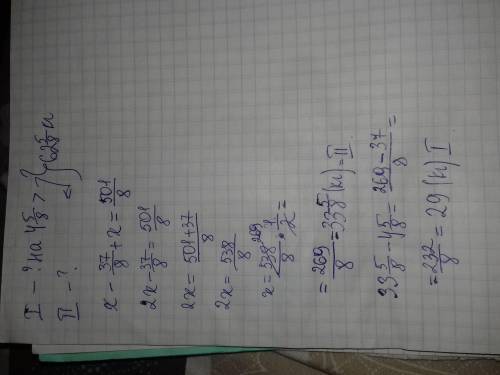 I - ? на 4 5/8 > } 62 5/8 м
II - ? <
x - 37/8 + x = 501/8
2x - 37/8 = 501/8
2x = (501+37)/8
2x = 538/8
x = 538 269/8 · 1/2 =
= 269/8 = 33 5/8 (м) = II
33 5/8 - 4 5/8 = (269-37)/8 =
= 232/8 = 29 (м) I